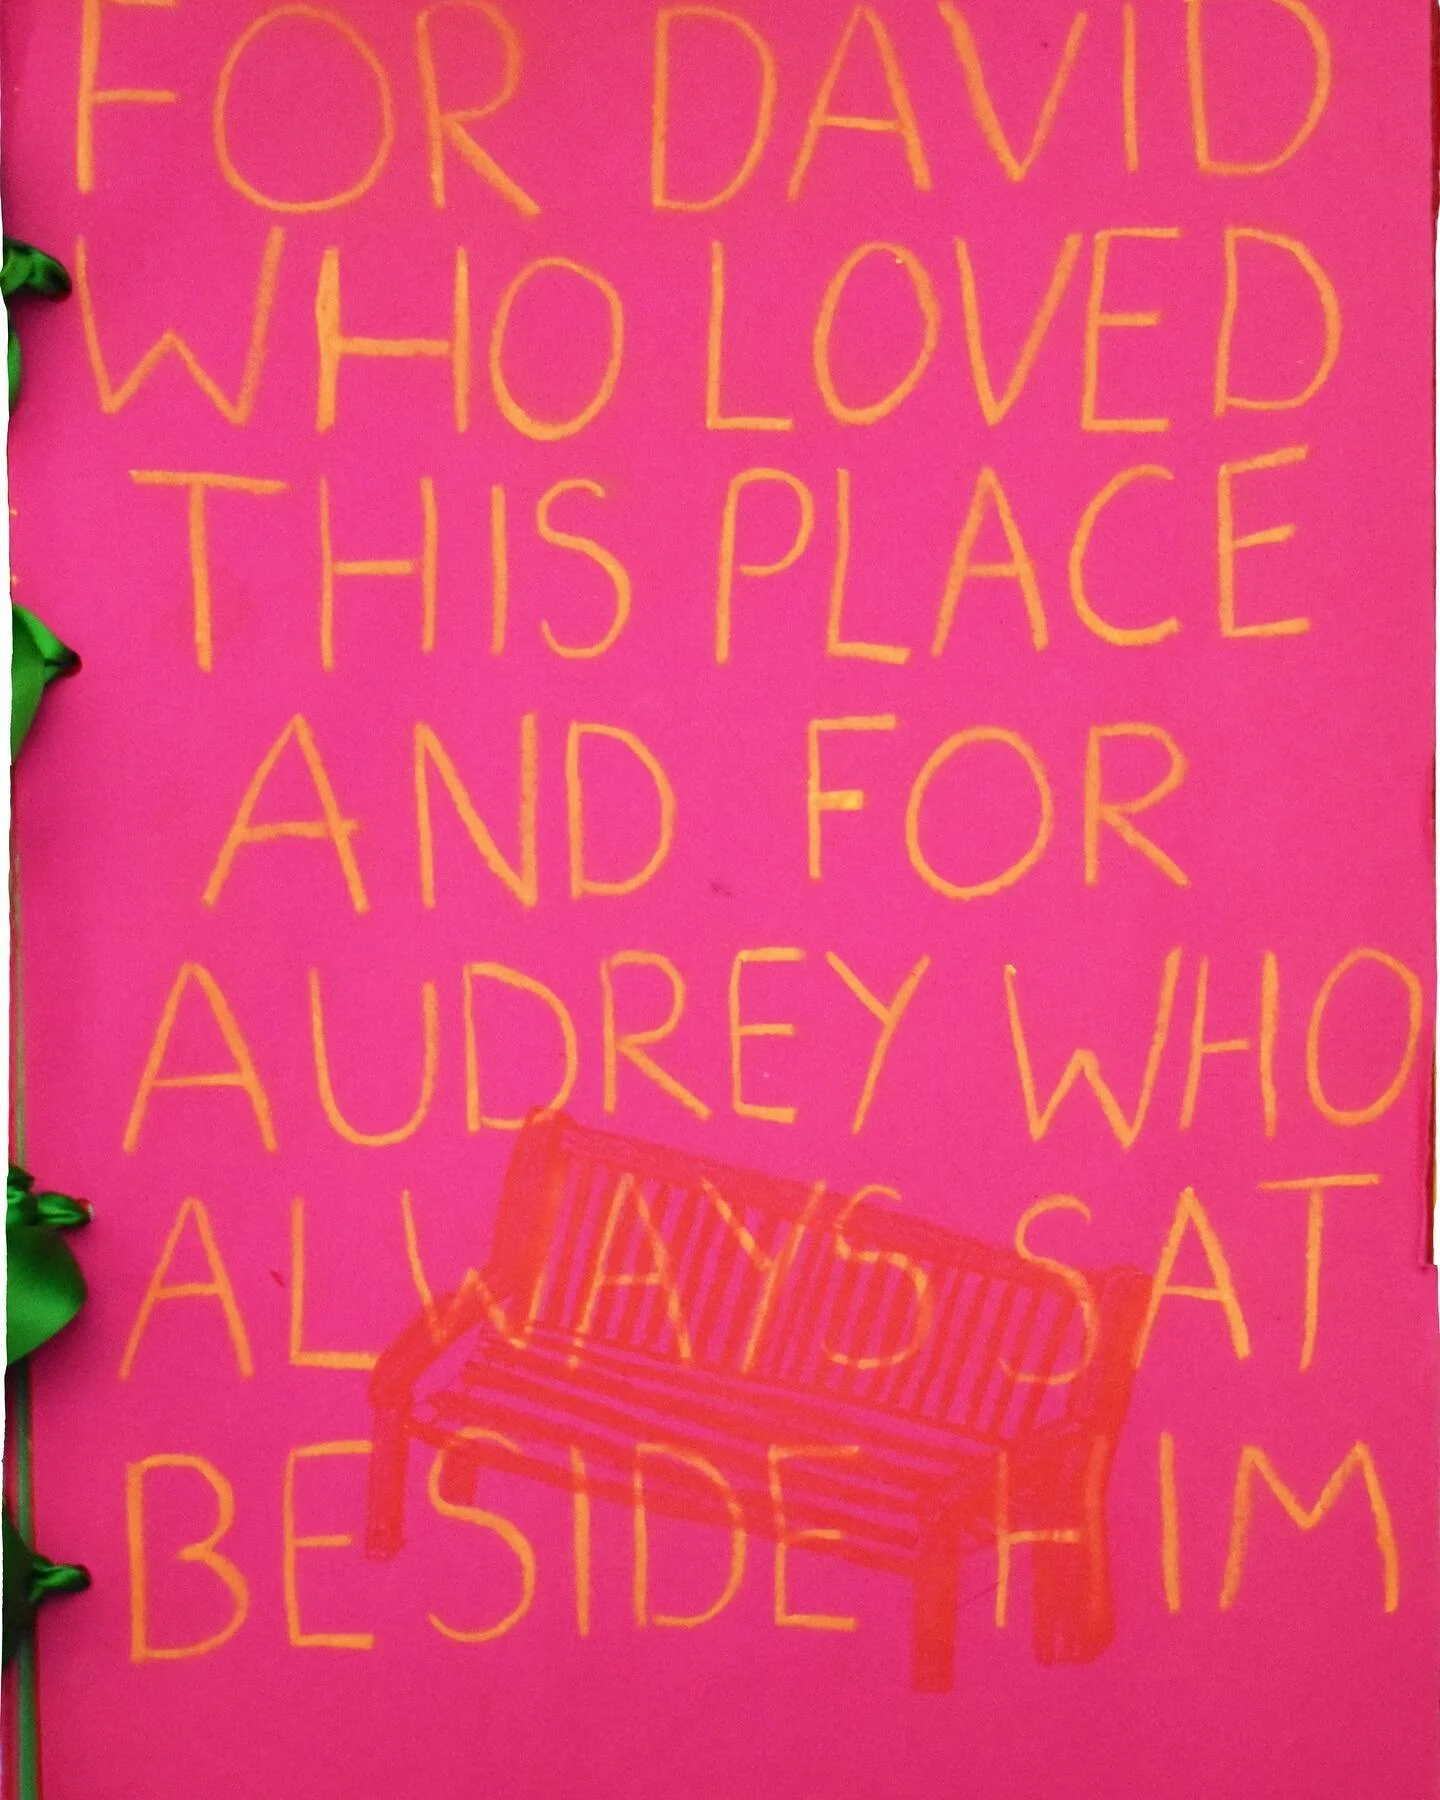 FOR DAVID
WHO LOVED
THIS PLACE
AND FOR
AUDREY WHO
ALWAYS SAT
BESIDE HIM